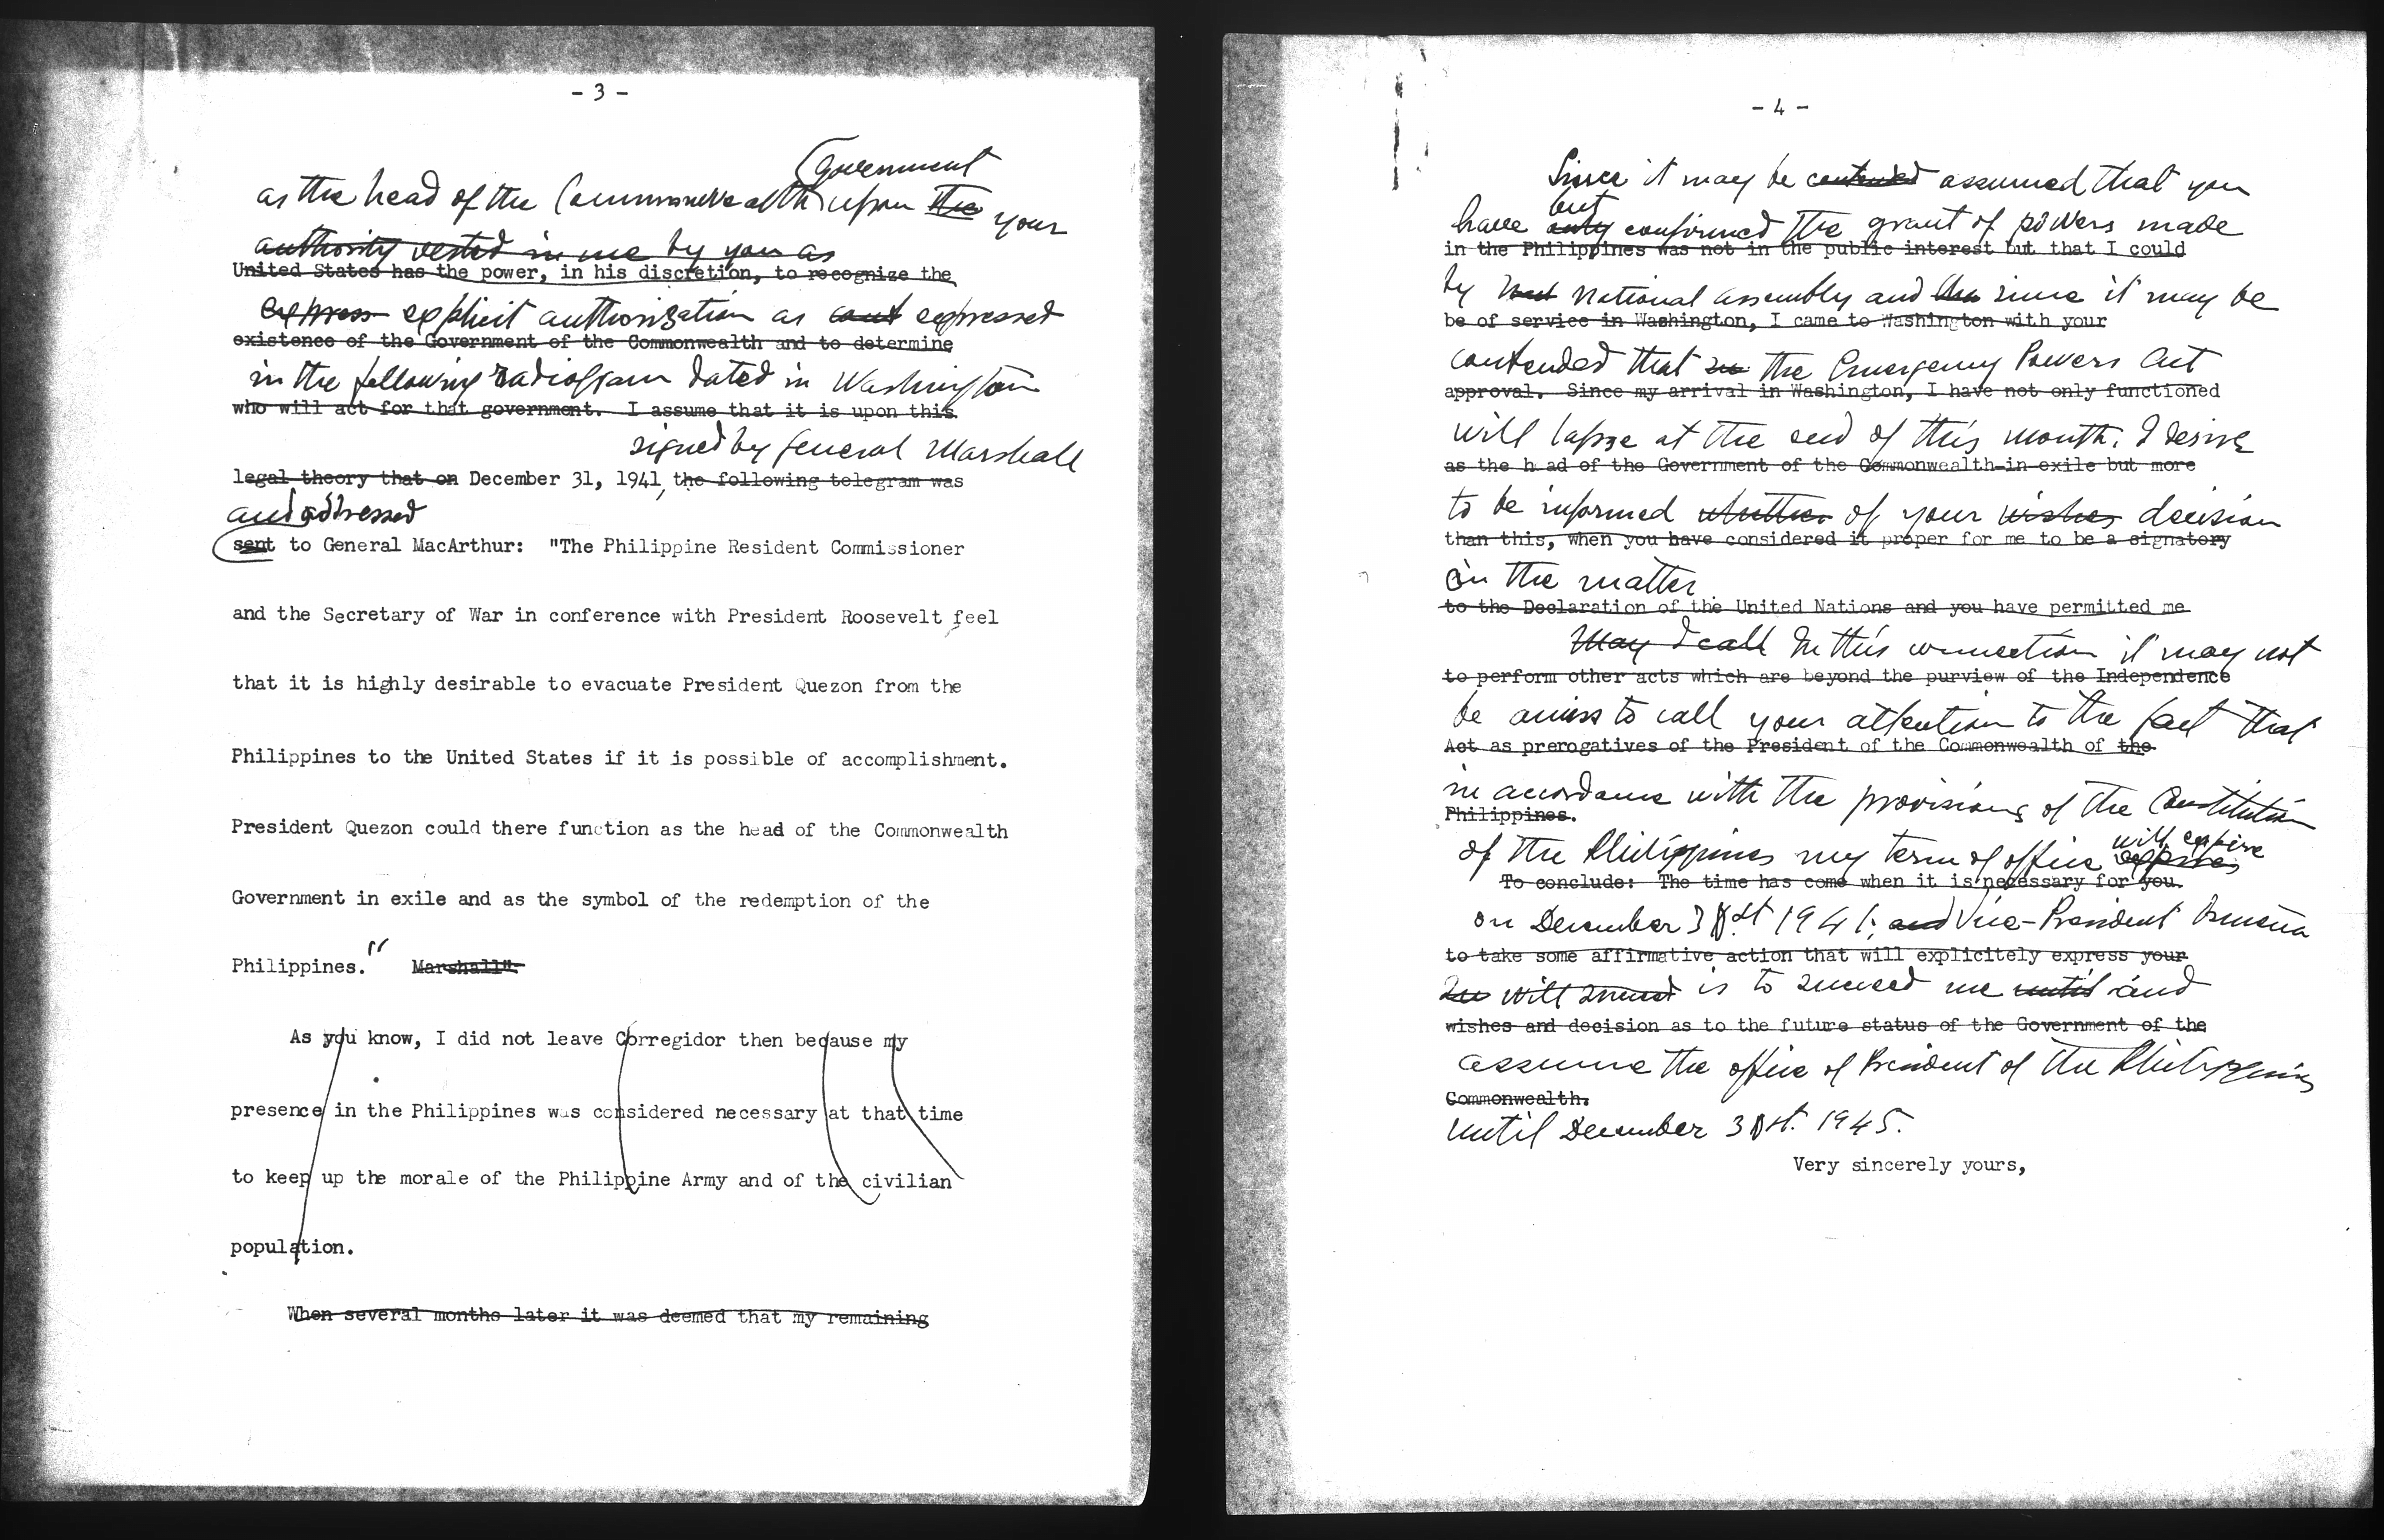 - 3 -
Government
as the head of the Commonwealth upon the your
authority vested in me by you as
United States has the power, in his discretion, to recognize the
express explicit authorization as expressed
existence of the Government of the Commonwealth and to determine
in the following radiogram dated in Washington
who will act for that government. I assume that it is upon this
signed by General Marshall
legal theory that on December 31, 1941, the following telegram was
and addressed
sent to General MacArthur: "The Philippine Resident Commissioner
and the Secretary of War in conference with President Roosevelt feel
that it is highly desirable to evacuate President Quezon from the
Philippines to the United States if it is possible of accomplishment.
President Quezon could there function as the head of the Commonwealth
Government in exile and as the symbol of the redemption of the
Philippines." Marshall".
As you know, I did not leave Corregidor then because my
presence in the Philippines was considered necessary at that time
to keep up the morale of the Philippine Army and of the civilian
population.
When several months later it was deemed that my remaining
- 4 -
Since it may be contended assumed that you
but
have only confirmed the grant of powers made
in the Philippines was not in the public interest but that I could
by National Assembly and since it may be
be of service in Washington, I came to Washington with your
contended that the Emergency Powers Act
approval. Since my arrival in Washington, I have not only functioned
will lapse at the end of this month, I desire
as the head of the Government of the Commonwealth-in-exile but more
to be informed whether of your wishes decision
than this, when you have considered it proper for me to be a signatory
in the matter.
to the Declaration of the United Nations and you have permitted me
May I call In this connection it may not
to perform other acts which are beyond the purview of the Independence
be amiss to call your attention to the fact that
Act as prerogatives of the President of the Commonwealth of the
in accordance with the provisions of the Constitution
Philippines.
will expire
of the Philippines my term of office expires
To conclude: The time has come when it is necessary for you
on December 3 st 1941; and Vice-President Osmeña
to take some affirmative action that will explicitely express your
will succeed is to succeed me until and
wishes and decision as to the future status of the Government of the
assume the office of President of the Philippines
Commonwealth.
until December 3 st. 1945.
Very sincerely yours,